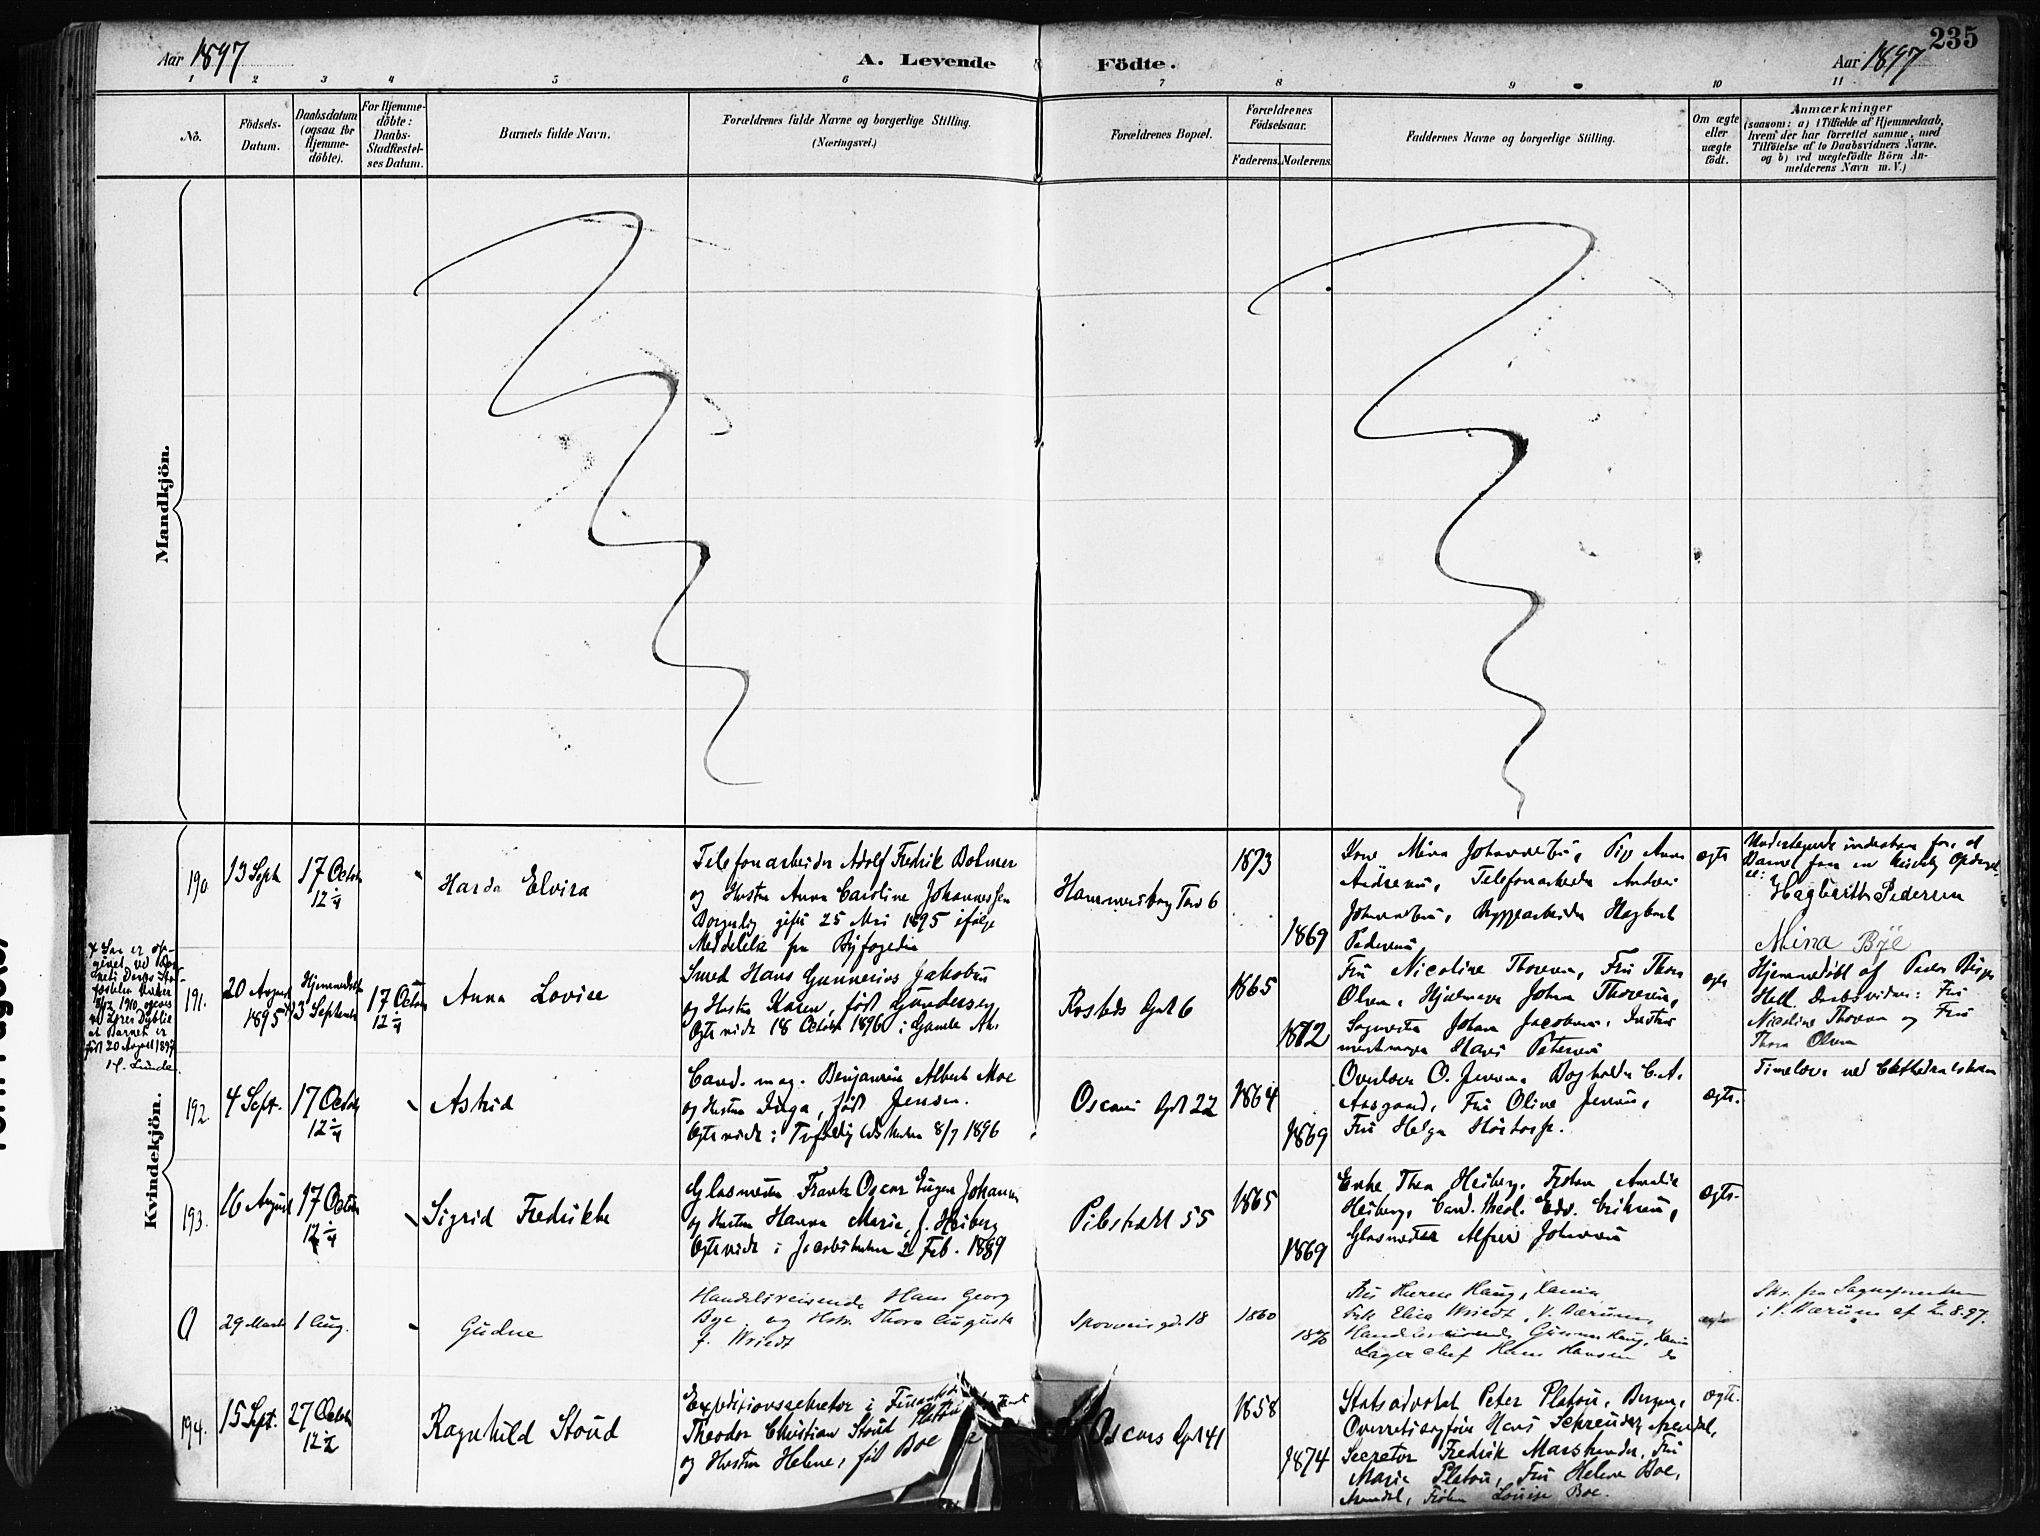 235
Aar 1897
A. Levende Födte.
Aar 1897
1 2 3 4 5 6 7 8 9 10 11
No.
Födsels-
Datum.
Daabsdatum
(ogsaa for
Hjemme-
döbte).
For Hjemme-
döbte:
Daabs-
Stadfæstel-
ses Datum.
Barnets fulde Navn.
Forældrenes fulde Navne og borgerlige Stilling.
(Næringsvei.)
Forældrenes Bopæl.
Forældrenes
Födselsaar.
Faderens.
Moderens.
Faddernes Navne og borgerlige Stilling.
Om ægte
eller
uægte
födt.
Anmærkninger
(saasom: a) i Tilfælde af Hjemmedaab,
hvem der har forrettet samme, med
Tilföielse af to Daabsvidners Navne.
og b) ved uægtefödte Börn An-
melderens Navn m.V.)
Mandkjön.
Kvindekjön.
190.
13 Sept
17 Octob
12 1/4
Harda Elvira
Telefonarbeider Adolf Fredrik Bohmer
og Hustru Anna Caroline Johannessen
Borgerlig gift 25 Mai 1895 ifølge
Meddelelse fra Byfogden
Hammersborg Torv 6
1873
1869
Kone Mina Johannesen, Pige Anna
Andresen, Telefonarbeider Anders
Johannesen, Byggearbeider Hagbart
Pedersen
ægte
Hagbarth Pedersen
Mina Bye
191.
20 August
1895
Hjemmedøbt
3 September
17 Octbr
12 1/4
Anna Lovise
Smed Hans Gunnerius Jakobsen
og Hustru Karen, født Gundersen
Ægteviede 18 October 1896 i Gamle Aker
Rosteds Gade 6
1865
1872
Fru Nicoline Thoresen, Fru Thora
Olsen, Hjulmager John Thoresen,
Johan Jacobsen,
Hans Petersen
ægte
Hjemmedøbt af
Daabsvidner: Fru
Nicoline Thoresen og Fru
Thora Olsen
født 20 August 1897
192.
4 Sept.
17 Octob
12 1/4
Astrid
Cand. mag. Benjamin Albert Moe
og Hustru Inga, født Jensen.
Ægteviede i Trefoldighedskirken 8/7 1896
Oscars Gd 22
1864
1869
O. Jensen, Bogholder C. A.
Aasgaard, Fru Oline Jensen,
Fru Helga
ægte.
Timelærer ved Cathedralskolen
193.
16 August
17 Octbr
12 1/4
Sigrid Fredrikke
Glasmester Frantz Oscar Eugen Johansen
og Hustru Hanna Marie, f. Heiberg
Ægteviede i Jacobskirken 2 Feb. 1889
Pilestrædet 55
1865
1869
Enke Thea Heiberg, Frøken Amalie
Heiberg, Cand. theol. Edv. Eriksen,
Glasmester Alfred Johansen
ægte.
0
29 Marts
1 Aug.
Gudne
Handelsreisende Hans Georg
Bye og Hstr. Thora Augusta
f. Wriedt
Sporveisgd. 18
1860
1870
Frk Elisa Wriedt, V. Bærum,
Lagerchef Hans Hansen do
ægte
Skr. fra Sognepresten
i V. Bærum af 8.97.
194.
15 Sept.
27 Octob
12 1/2
Ragnhild Stoud
Expeditionssekretær i
Theodor Christian Stoud Platou
og Hustru Helene, født Boe
Oscars Gd 41
1858
1874
Statsadvokat Peter Platou, Bergen,
Overretssagfører Hans Schreuder, Arendal,
Secretær Fredrik Marstrander, Fru
Marie Platou, Fru Helene Boe,
Arendal, Frøken Louise Boe.
ægte.